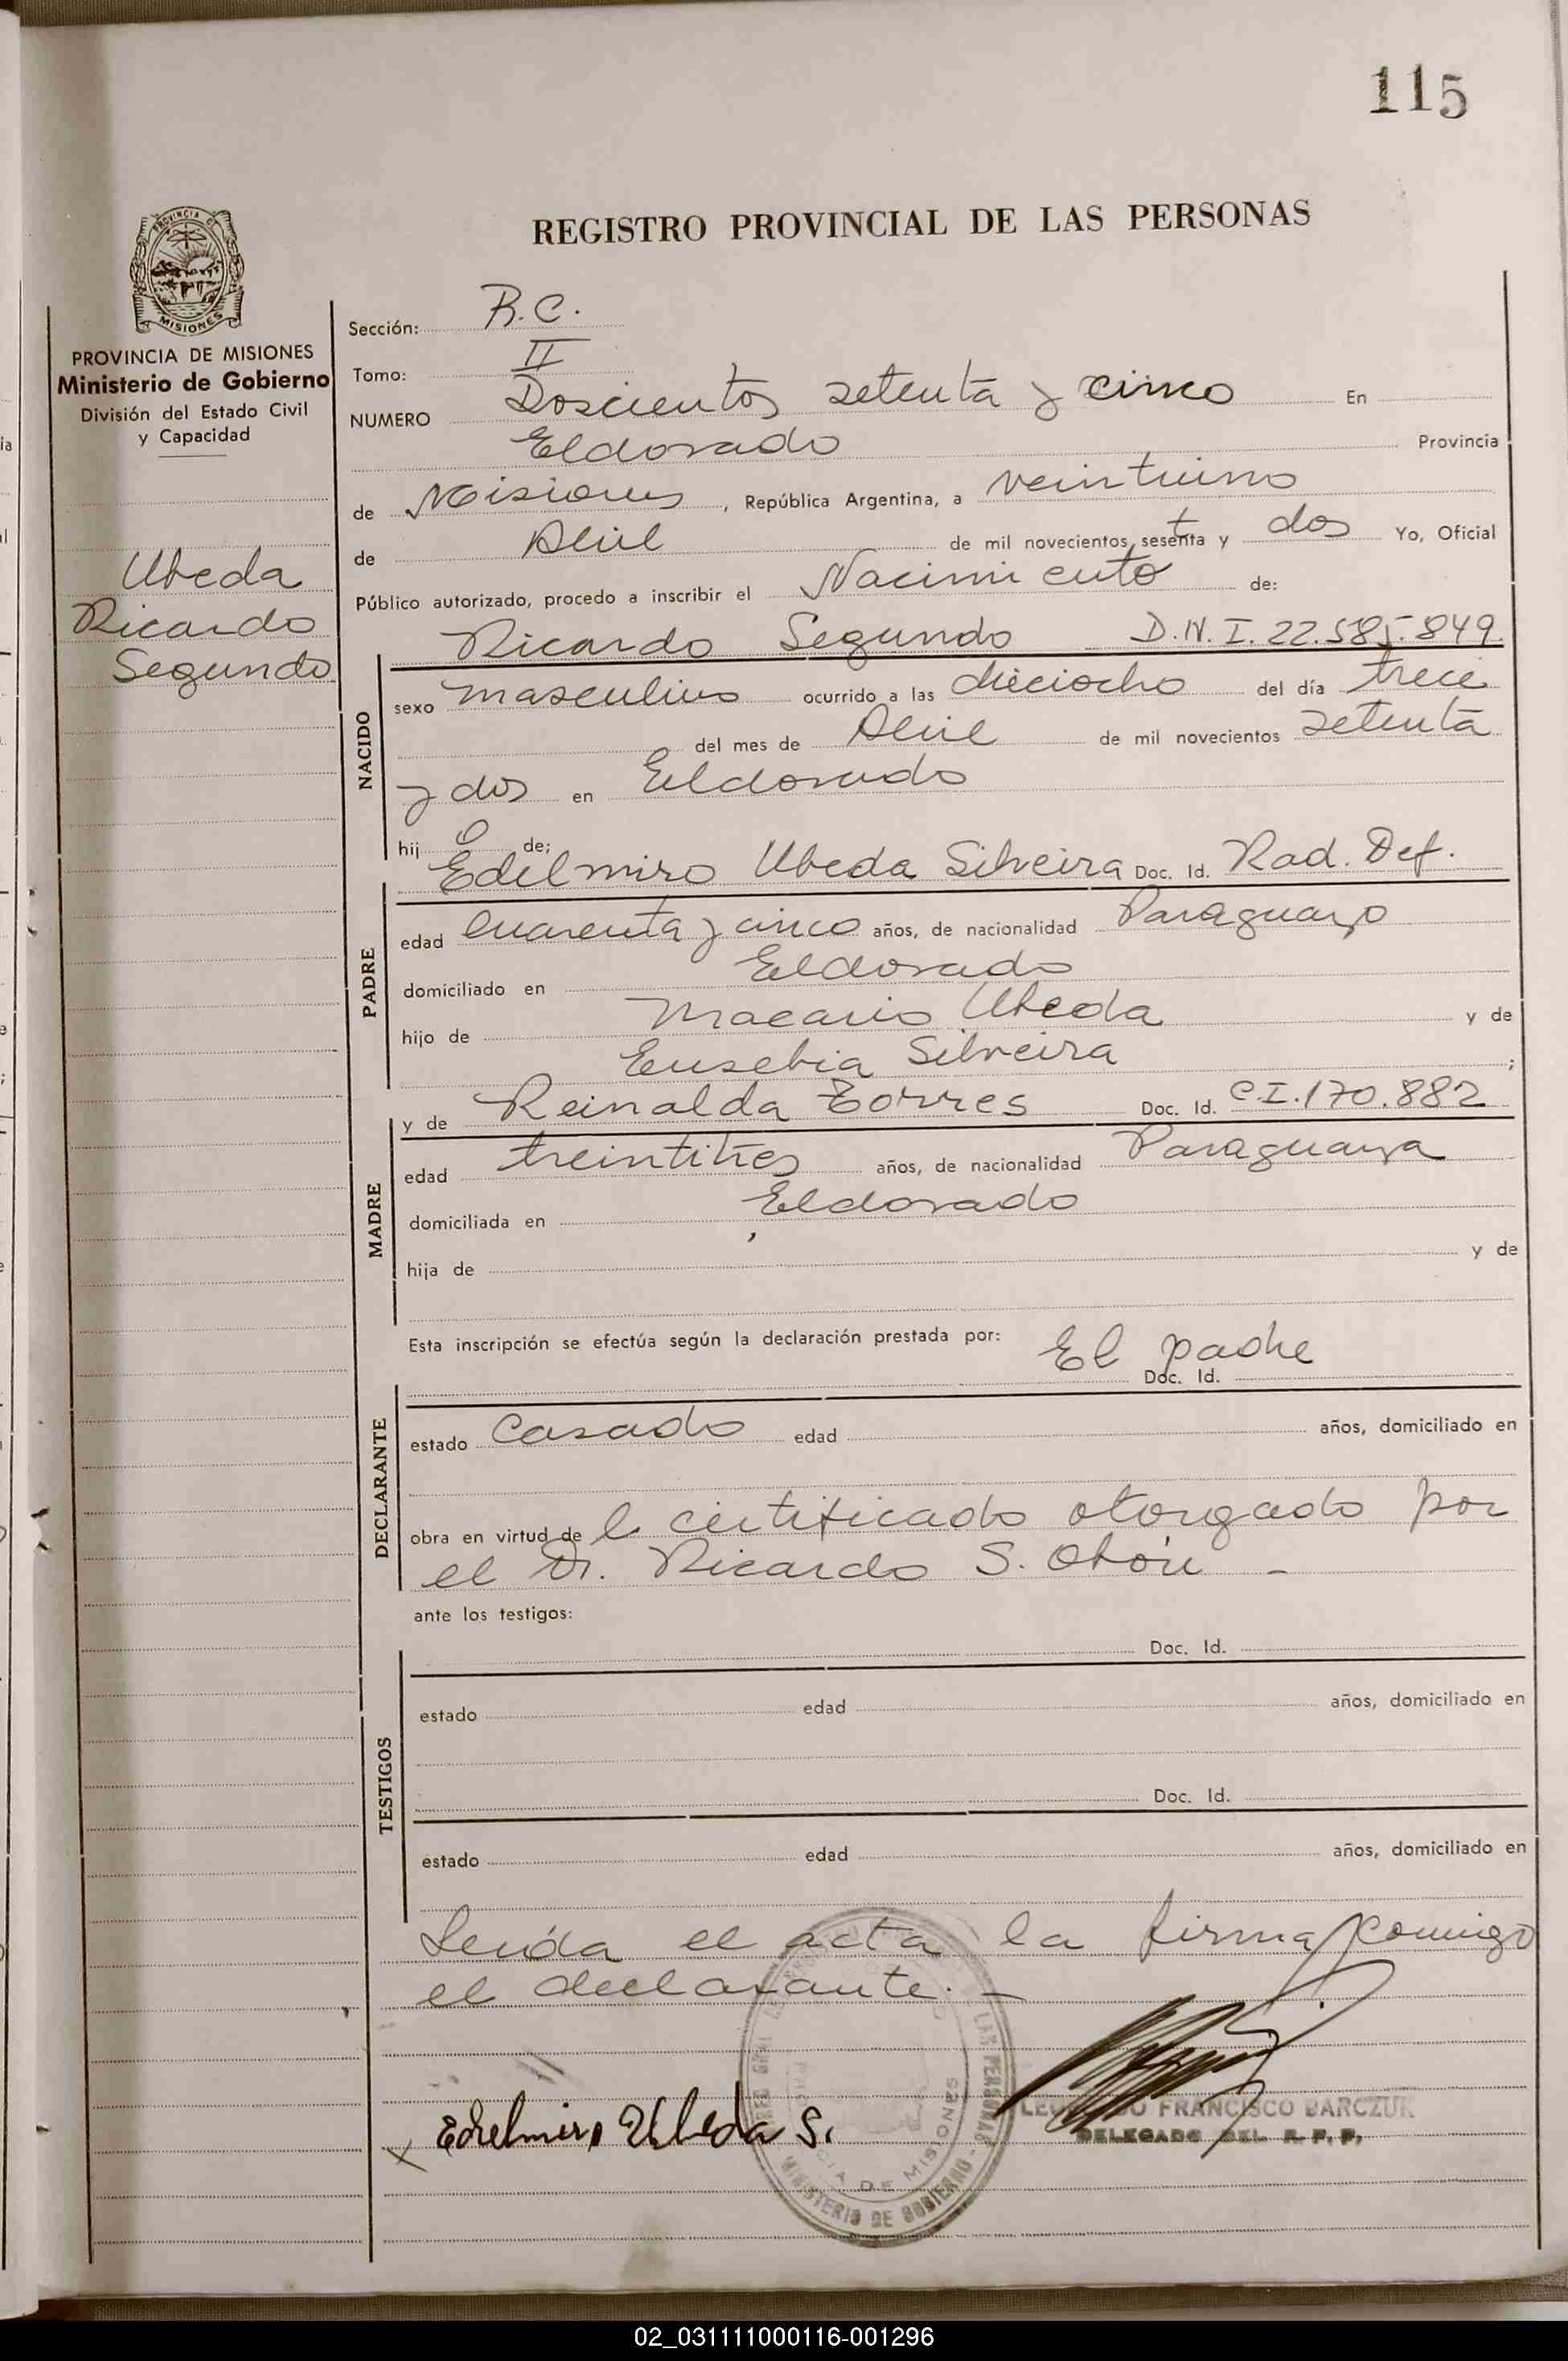 115
REGISTRO PROVINCIAL DE LAS PERSONAS
PROVINCIA DE MISIONES
Ministerio de Gobierno
División del Estado Civil
y Capacidad
Ubeda
Ricardo
Segundo
Sección: R.C.
Tomo: II
NUMERO Doscientos setenta y cinco En
Eldorado Provincia
de Misiones, República Argentina, a veintiuno
de Abril de mil novecientos sesenta y dos Yo, Oficial
Público autorizado, procedo a inscribir el Nacimiento de:
Ricardo Segundo D.N.I. 22.585.849
NACIDO
sexo masculino ocurrido a las dieciocho del día trece
del mes de Abril de mil novecientos setenta
y dos en Eldorado
hijo de;
Edelmiro Ubeda Silveira Doc. Id. Rad. Def.
PADRE
edad cuarenta y cinco años, de nacionalidad Paraguayo
domiciliado en Eldorado
hijo de Macario Ubeda y de
Eusebia Silveira ;
y de Reinalda Torres Doc. Id. C.I. 170.882
MADRE
edad treintitres años, de nacionalidad Paraguaya
domiciliada en Eldorado
hija de y de
Esta inscripción se efectúa según la declaración prestada por: El padre
Doc. Id.
DECLARANTE
estado Casado edad años, domiciliado en
obra en virtud de l certificado otorgado por
el Dr. Ricardo S.
ante los testigos:
Doc. Id.
TESTIGOS
estado edad años, domiciliado en
Doc. Id.
estado edad años, domiciliado en
Leída el acta la firma comigo
el declarante. -
x Edelmiro Ubeda S.
FRANCISCO BARCZUK
DELEGADO DEL R. P. P.
MINISTERIO DE GOBIERNO
LAS PERSONAS
CIA DE MISIONES
02_031111000116-001296